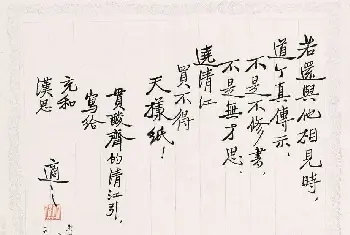 若還與他相見時，
道个真傳示，
不是不修書，
不是無才思，
遶清江
買不得
天樣紙！
貫酸齋的清江引，
寫給
充和
漢思
適之